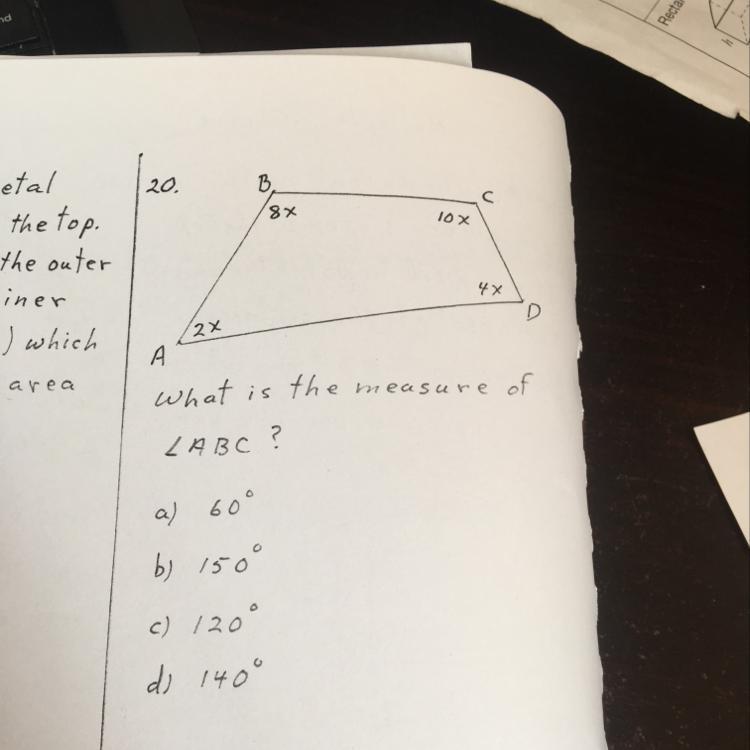 nd
Recta
h
etal
the top.
the outer
iner
) which
area
20.
B
C
8x
10x
4x
D
2x
A
What is the measure of
∠ABC ?
a) 60°
b) 150°
c) 120°
d) 140°